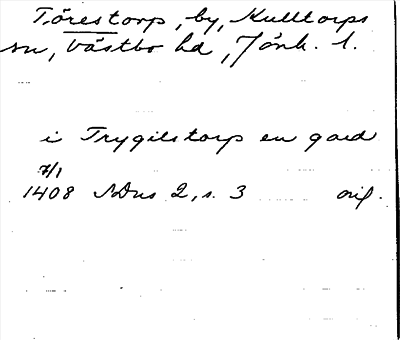 Törestorp, by, Kulltorps
sn, Västbo hd, Jönk. l.
i Trygilstorp en gard
7/1
1408 NDns 2, s. 3 orig.